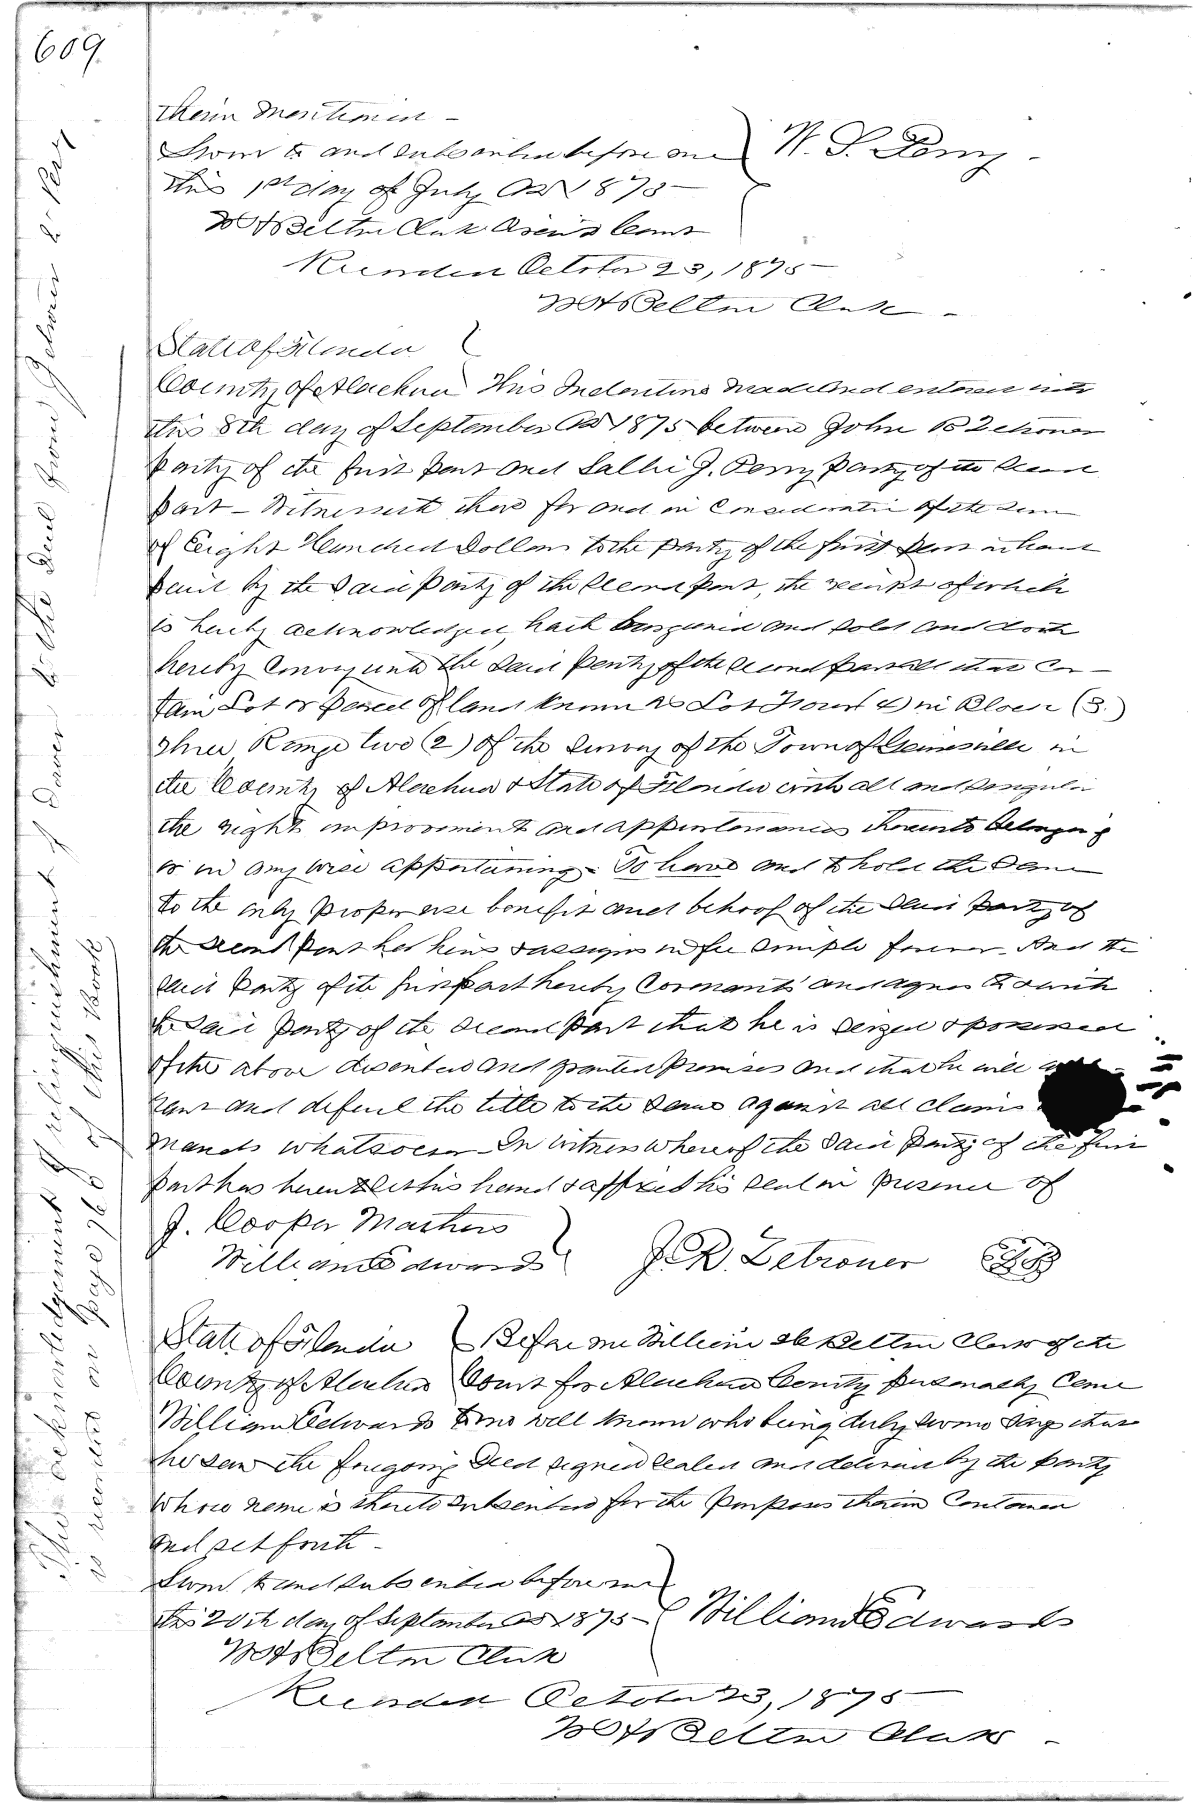 609
therein mentioned -
Sworn to and subscribed before me W. S. Perry -
this 1st day of July AD 1875
W H Belton Clerk Circuit Court
Recorded October 23, 1875
W H Belton Clerk -
State of Florida
County of Alachua This Indenture made and entered into
this 8th day of September AD 1875 between John R Zetrouer
party of the first part and Sallie J. Perry party of the second
part - Witnesseth that for and in Consideration of the sum
of Eight Hundred Dollars to the party of the first part in hand
paid by the said party of the second part, the receipt of which
is hereby acknowledged, hath bargained and sold and doth
hereby Convey unto the said party of the second part all that Cer-
tain Lot or parcel of land known as Lot Four (4) in Block (3)
three, Range two (2) of the survey of the Town of Gainesville in
the County of Alachua & State of Florida with all and singular
the rights improvements and appurtenances thereunto belonging
or in any wise appertaining - To have and to hold the same
to the only proper use benefit and behoof of the said party of
the second part her heirs & assigns in fee simple forever. And the
said party of the first part hereby Covenants and agrees to & with
the said party of the second part that he is seized & possessed
of the above described and granted premises and that he will
rant and defend the title to the same against all claims
mands whatsoever - In witness whereof the said party of the first
part has hereunto set his hand & affixed his seal in presence of
J. Cooper Mathers
William Edwards J. R. Zetrouer
State of Florida Before me William H Belton Clerk of the
County of Alachua Court for Alachua County personally Came
William Edwards to me well known who being duly sworn says that
he saw the foregoing Deed signed sealed and delivered by the party
whose name is thereto subscribed for the purposes therein Contained
and set forth -
Sworn to and subscribed before me
this 20th day of September AD 1875 William Edwards
W H Belton Clerk
Recorded October 23, 1875
W H Belton Clerk -
The acknowledgement & relinquishment of dower to the Deed from Zetrouer to Perry
is recorded on page 76 of this Book